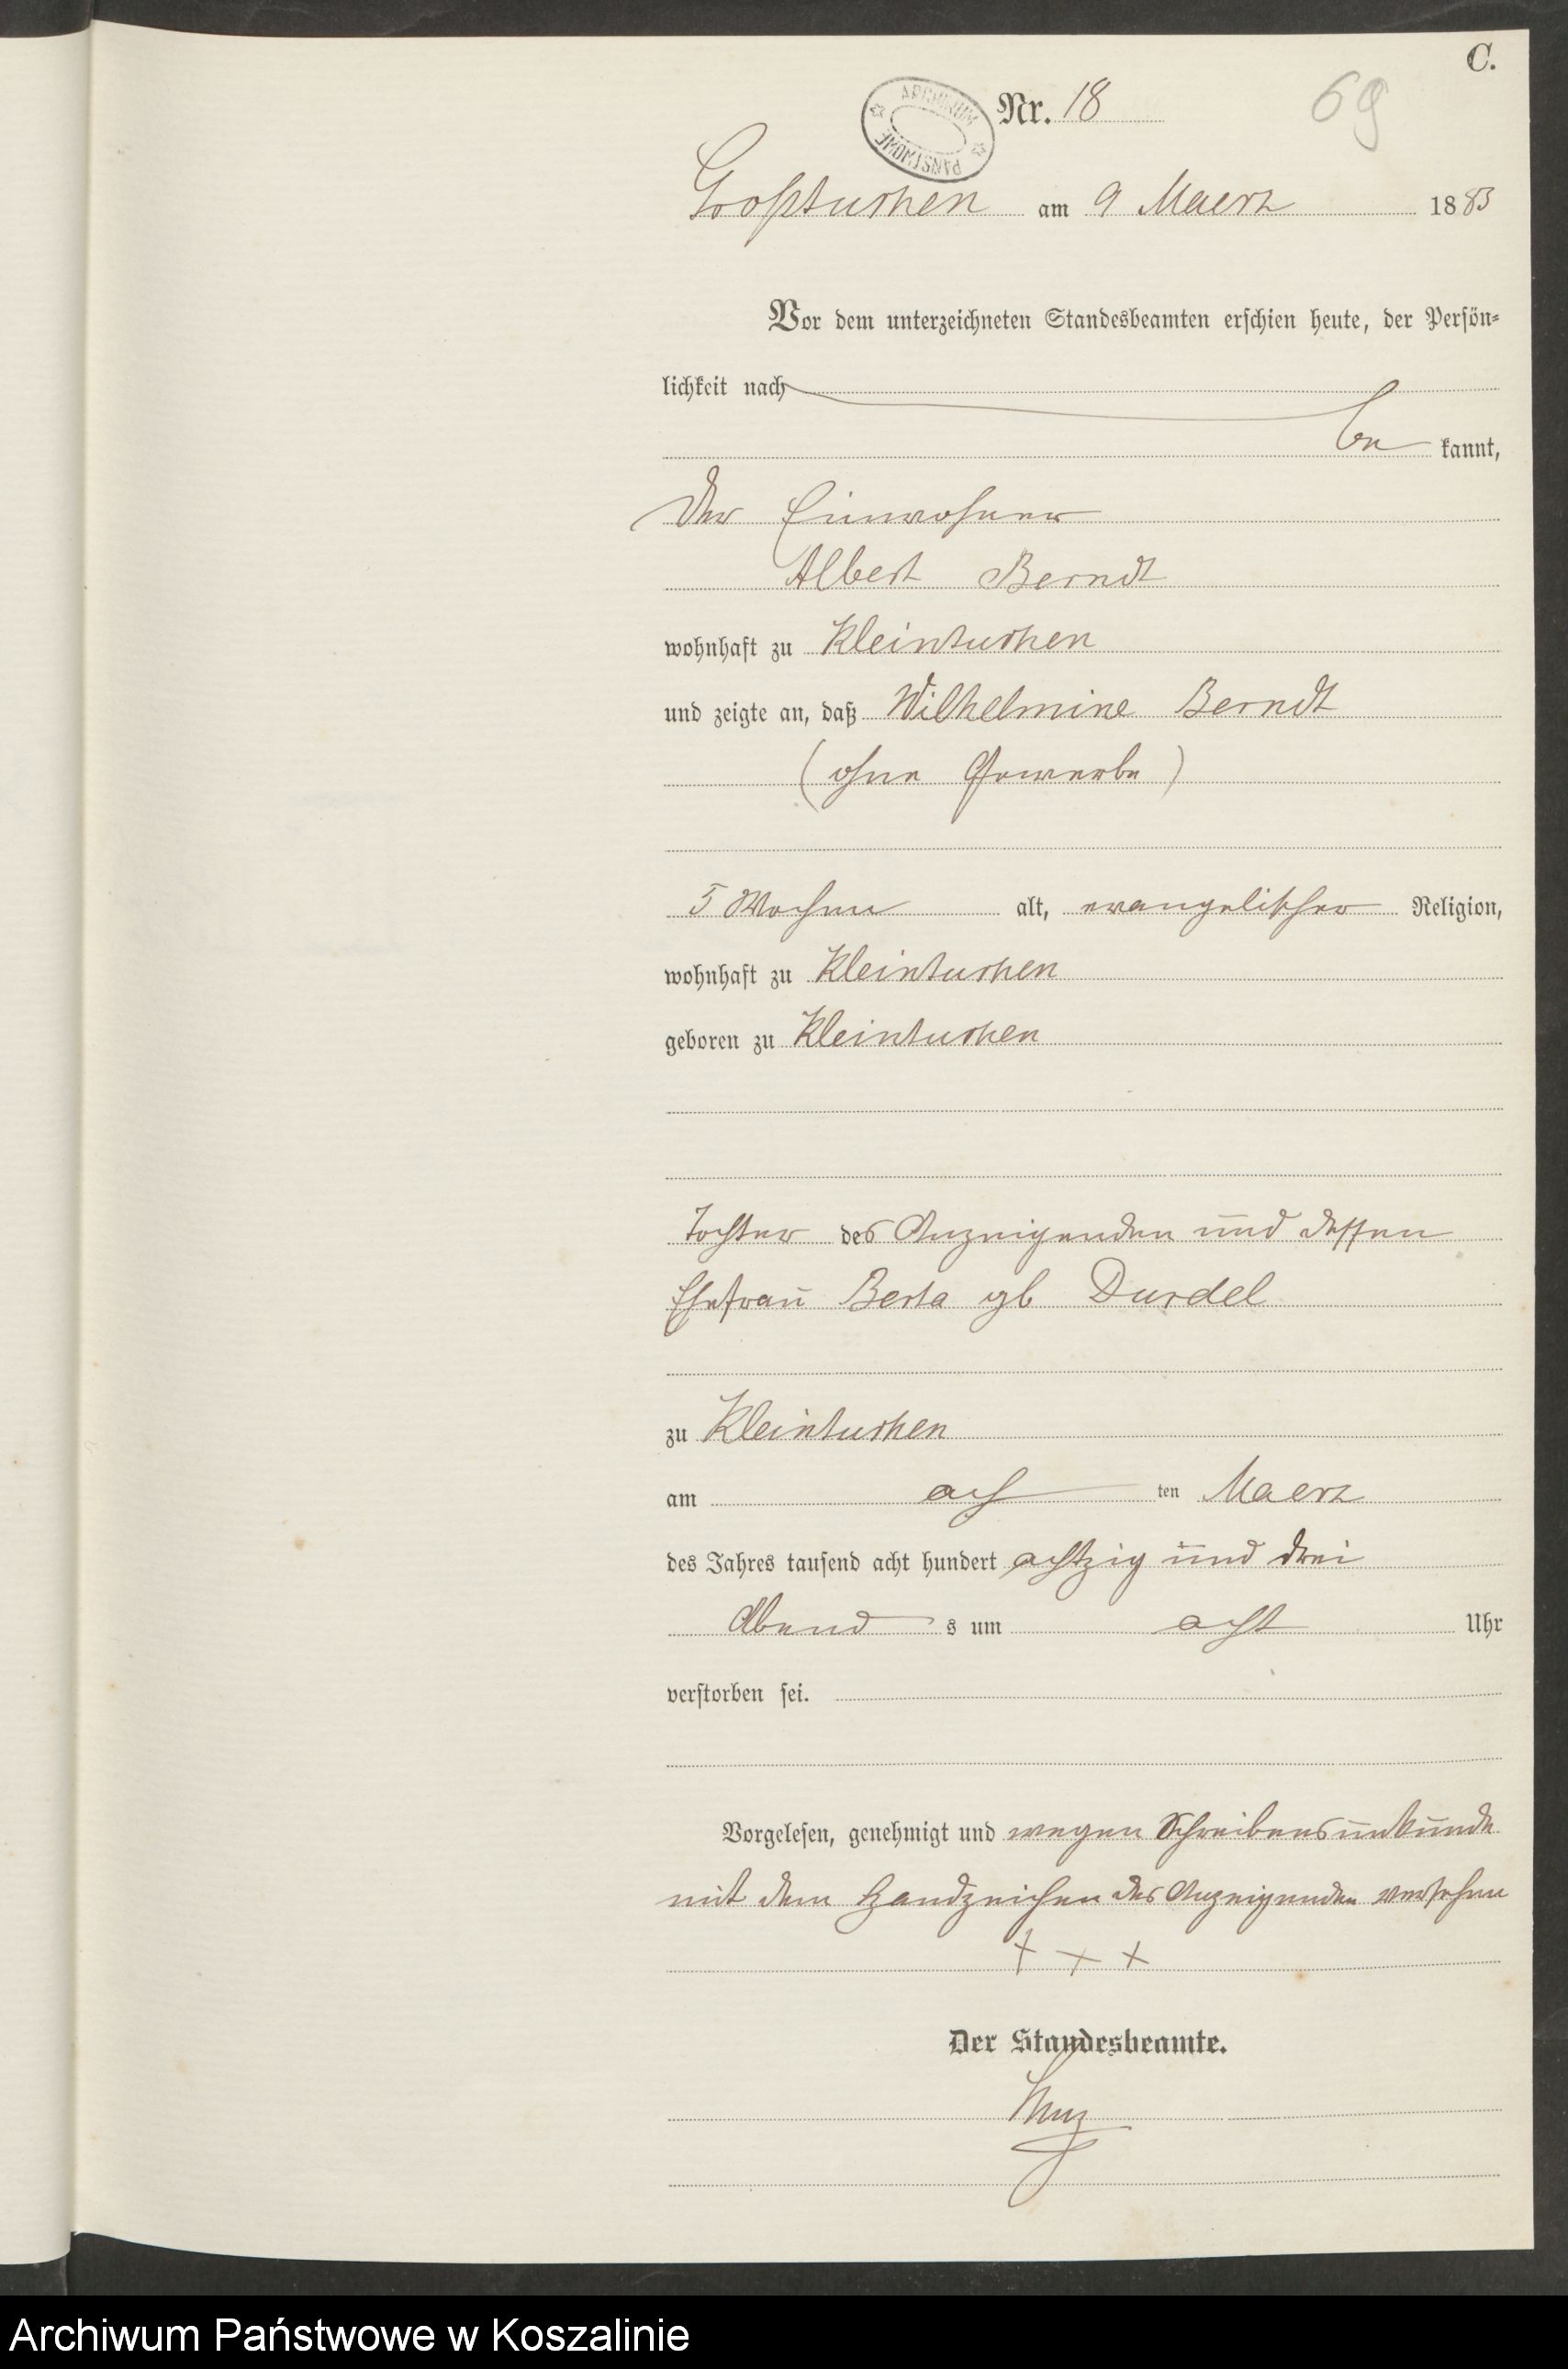 C.
ARCHIWUM PAŃSTWOWE
Nr. 18
69
Großtuchen am 9 Maerz 1883
Vor dem unterzeichneten Standesbeamten erschien heute, der Persön-
lichkeit nach
be kannt,
der Einwohner
Albert Berndt
wohnhaft zu Kleintuchen
und zeigte an, daß Wilhelmine Berndt
(ohne Gewerbe)
5 Wochen alt, evangelischer Religion,
wohnhaft zu Kleintuchen
geboren zu Kleintuchen
Tochter des Anzeigenden und dessen
Ehefrau Berta gb Durdel
zu Kleintuchen
am ach ten Maerz
des Jahres tausend acht hundert achtzig und drei
Abend s um acht Uhr
verstorben sei.
Vorgelesen, genehmigt und wegen Schreibensunkunde
mit dem Handzeichen des Anzeigenden versehen
+ + +
Der Standesbeamte.
Archiwum Państwowe w Koszalinie